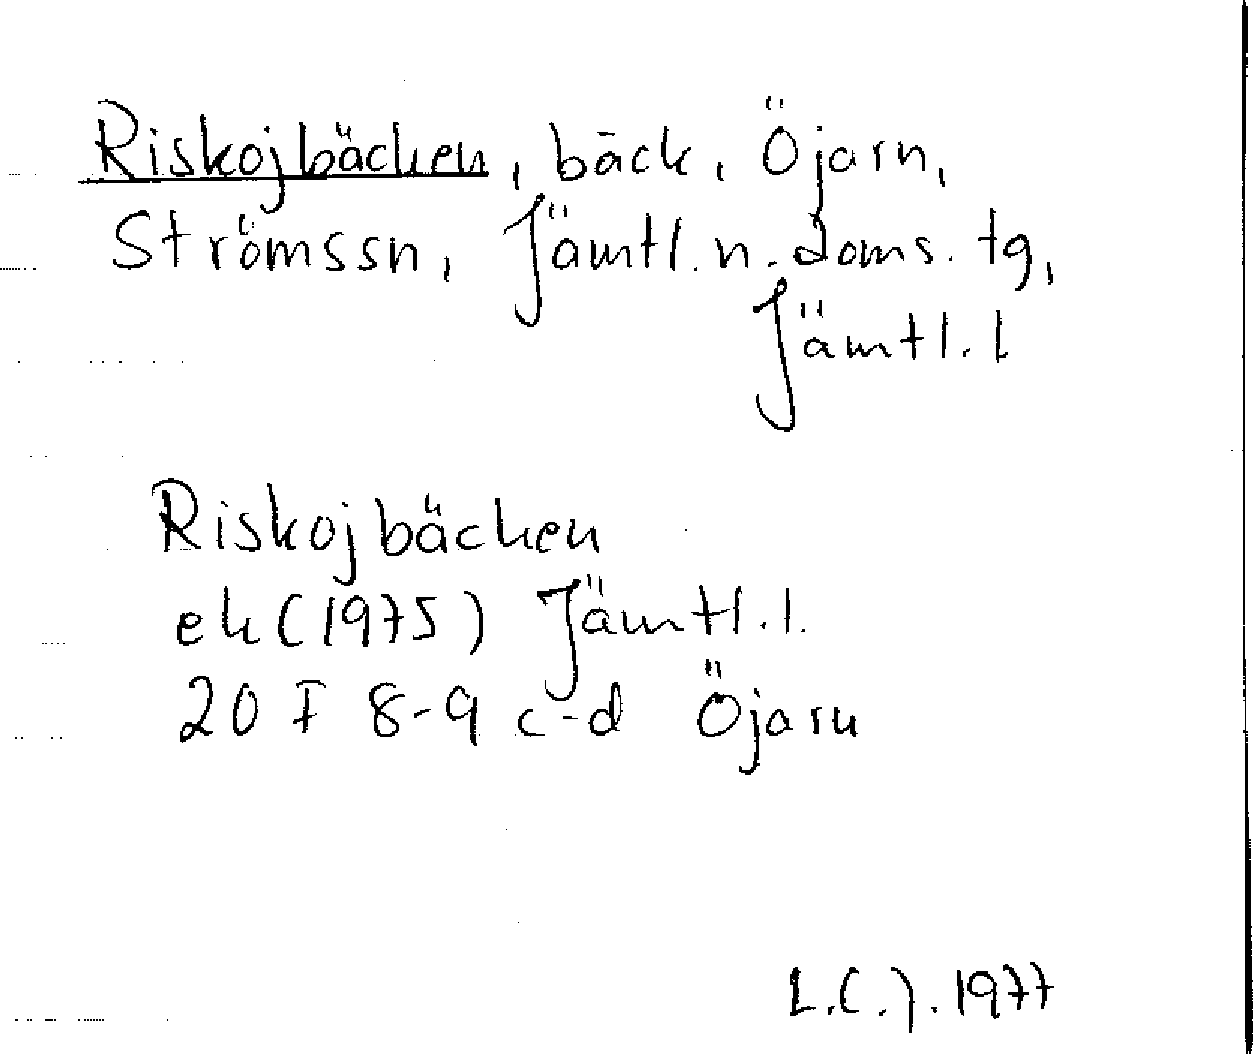 Riskojbäcken, bäck, Öjarn,
Strömssn, Jämtl. n. doms. tg,
Jämtl. l
Riskojbäcken
ek (1975) Jämtl. l.
20 F 8-9 c-d Öjarn
L.C.J. 1977